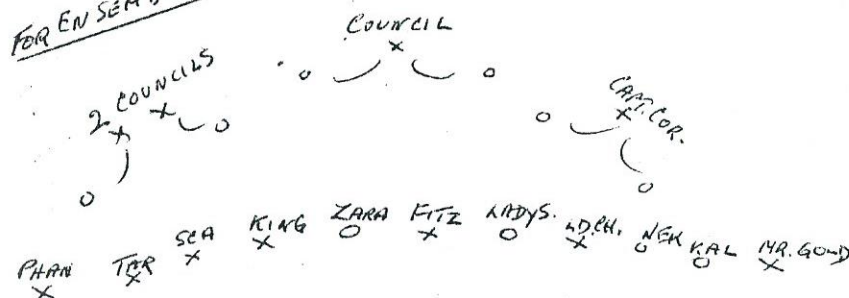 FOR ENSEM
COUNCIL
2 COUNCILS
CAPT. COR.
PHAN TAR SCA KING ZARA FITZ LADY S. LD.CH. NEK KAL MR. GOLD